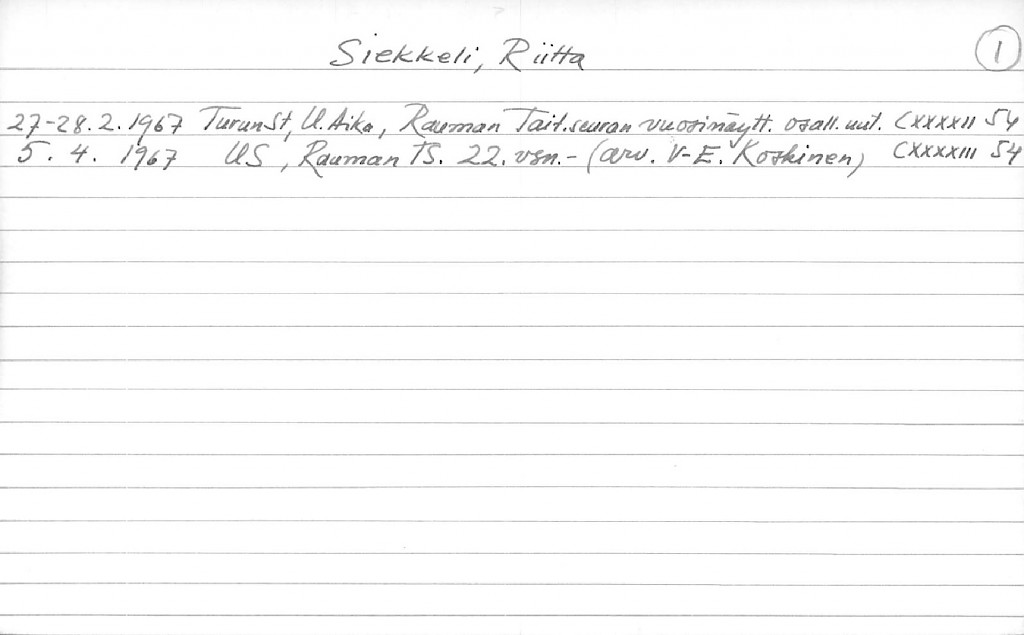 Siekkeli, Riitta
1
27-28.2.1967 Turun St, U. Aika, Rauman Tait.seuran vuosinäytt. osall. uut. CXXXXII 54
5. 4. 1967 US, Rauman TS. 22. vsn.- (arv. V-E. Koskinen) CXXXXIII 54